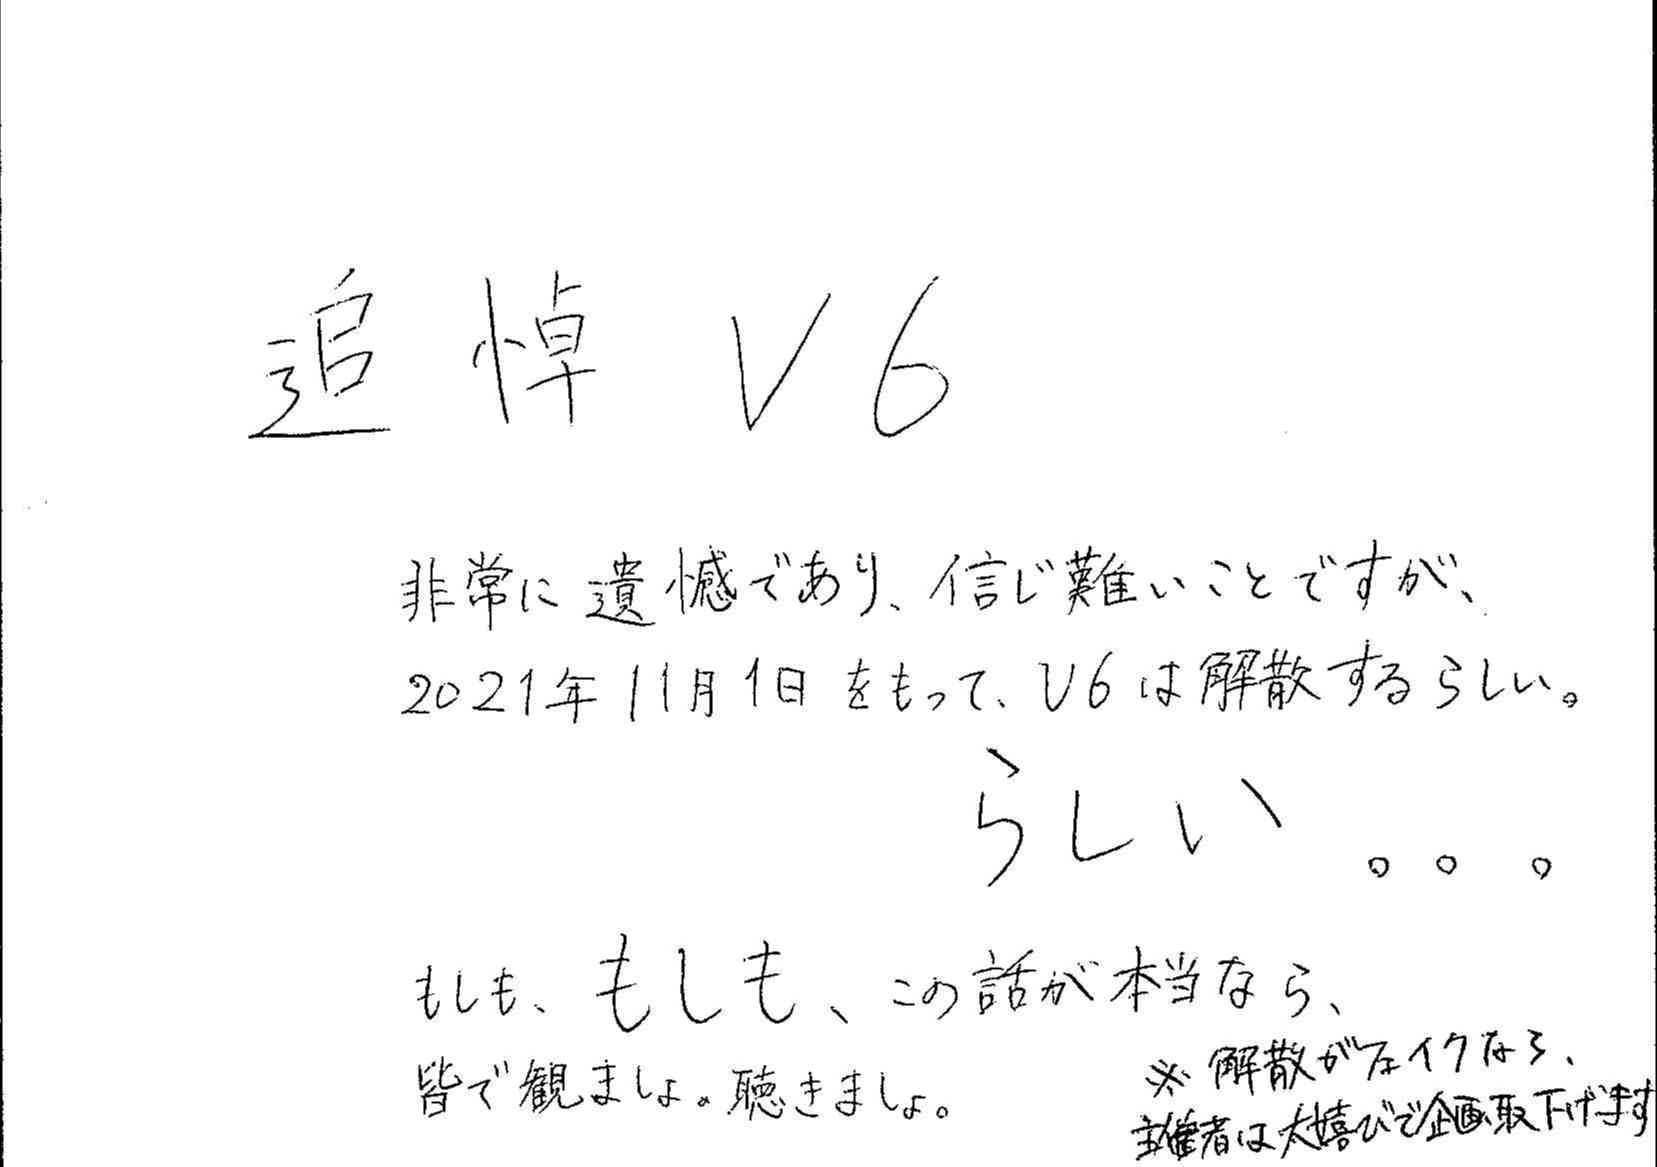 追悼 V6
非常に遺憾であり、信じ難いことですが、
2021年11月1日をもって、V6は解散するらしい。
らしい。。。
もしも、もしも、この話が本当なら、
皆で観ましょ。聴きましょ。
※解散がフェイクなら、
主催者は大喜びで企画取下げます